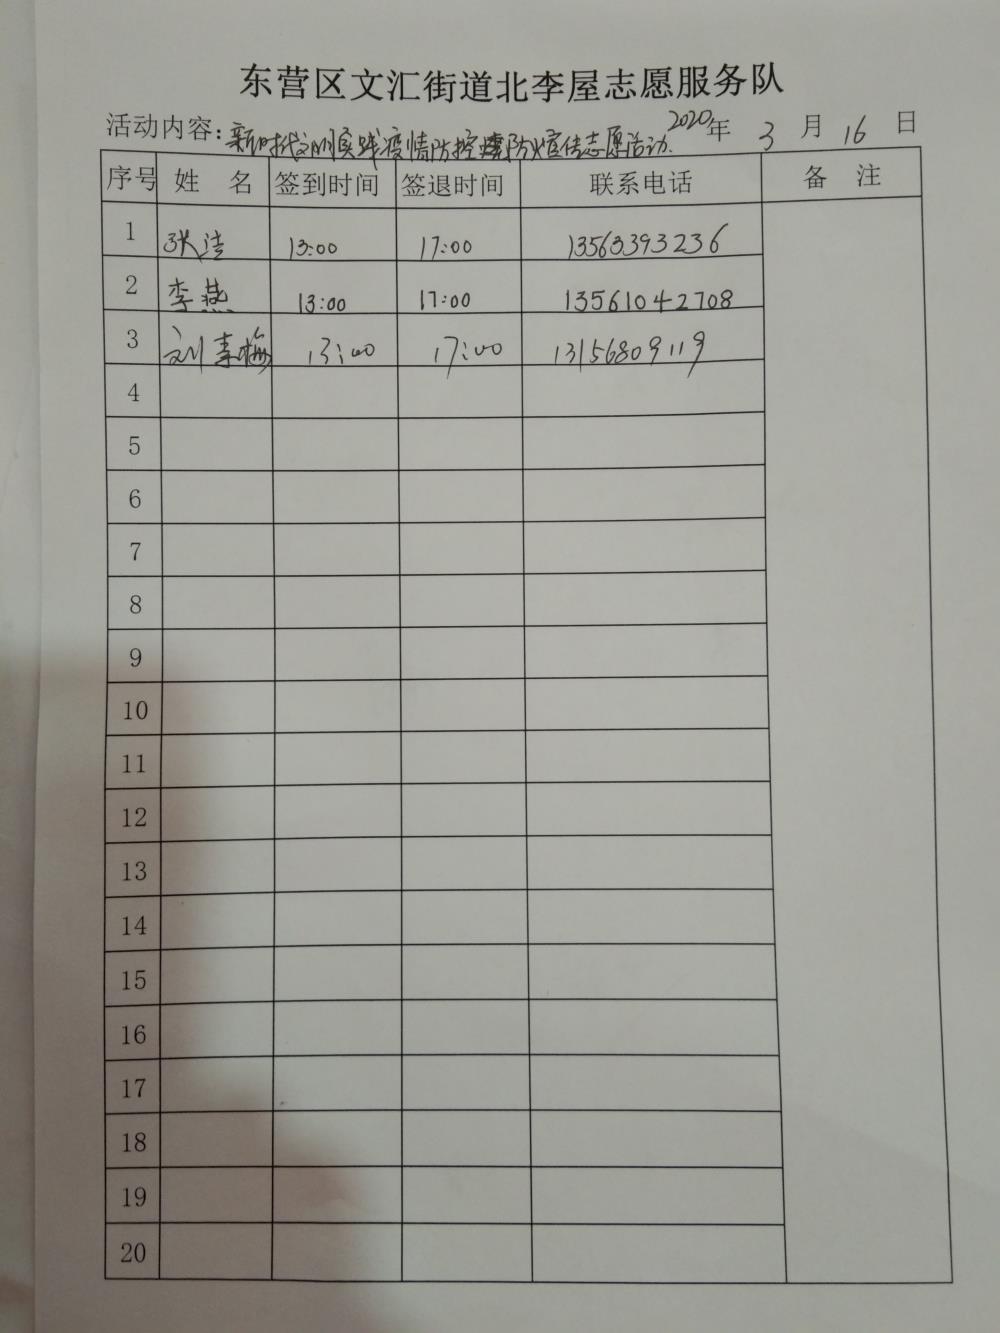 东营区文汇街道北李屋志愿服务队
活动内容:新时代文明实践疫情防控防火宣传志愿活动. 2020年 3 月 16 日
序号 姓 名 签到时间 签退时间 联系电话 备 注
1 张洁 13:00 17:00 13563393236
2 李燕 13:00 17:00 13561042708
3 刘春梅 13:00 17:00 13156809119
4
5
6
7
8
9
10
11
12
13
14
15
16
17
18
19
20